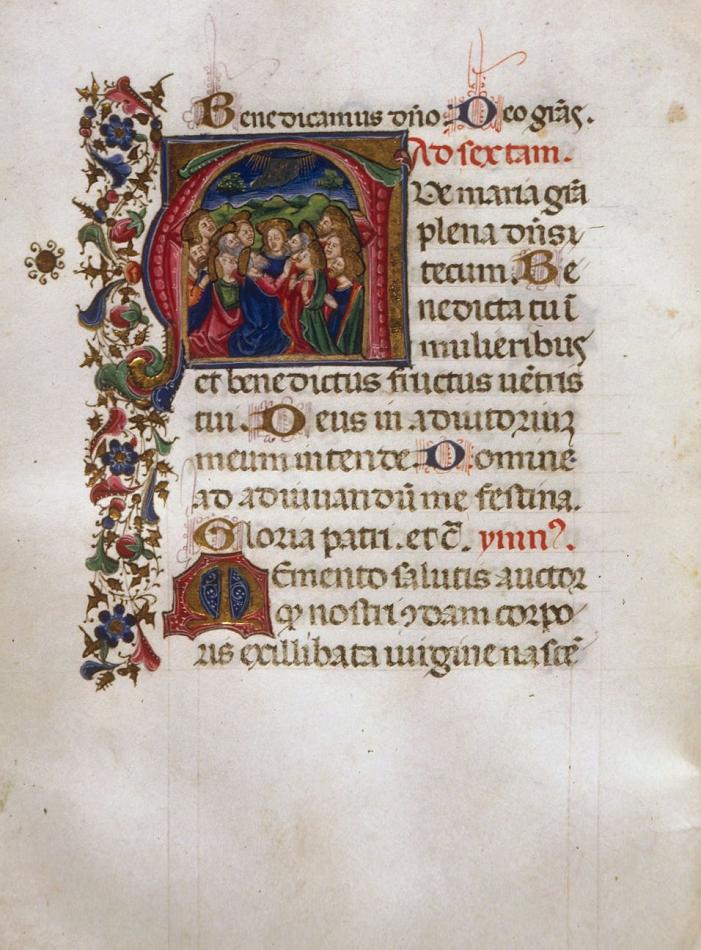 Benedicamus dño. Deo grãs.
Ad sextam.
AVe maria grã
plena dñs
tecum. Be
nedicta tu ĩ
mulieribus
et benedictus fructus uẽtris
tui. Deus in adiutoriuʒ
meum intende. Domine
ad adiuuandũ me festina.
Gloria patri. et c̃. ymnꝰ.
MEmento salutis auctor
ꝙ nostri ꝯdam corpo
ris ex illibata uirgine nascẽ